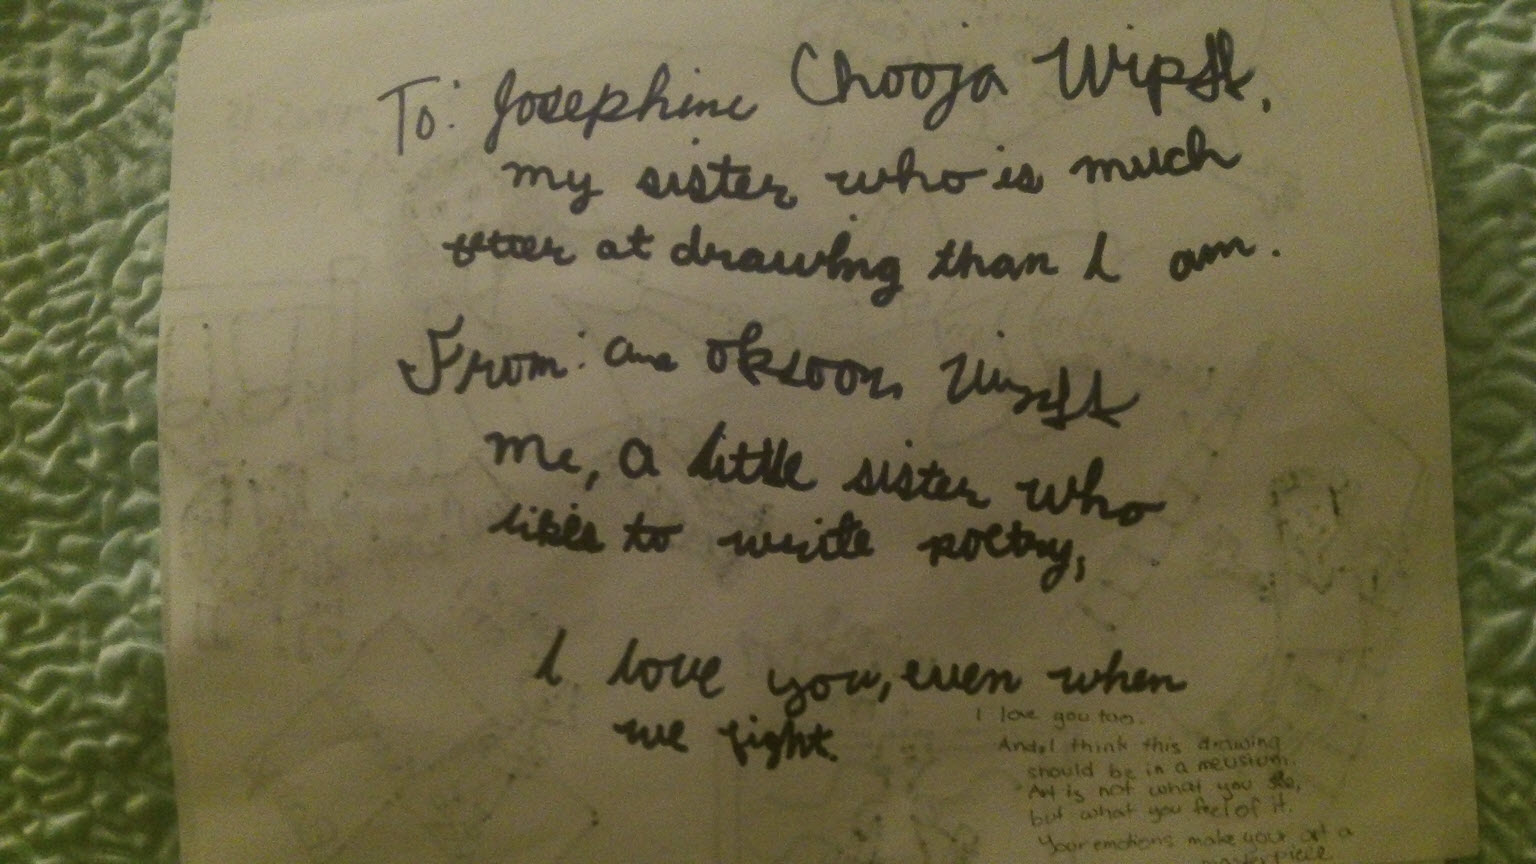 To: Josephine Chooja Wipfl,
my sister who is much
at drawing than I am.
From: Oksoon Wipfl
me, a little sister who
likes to write poetry,
I love you, even when
we fight.
I love you too.
And I think this drawing
should be in a meusium.
Art is not what you
but what you feel of it.
Your emotions make your art a